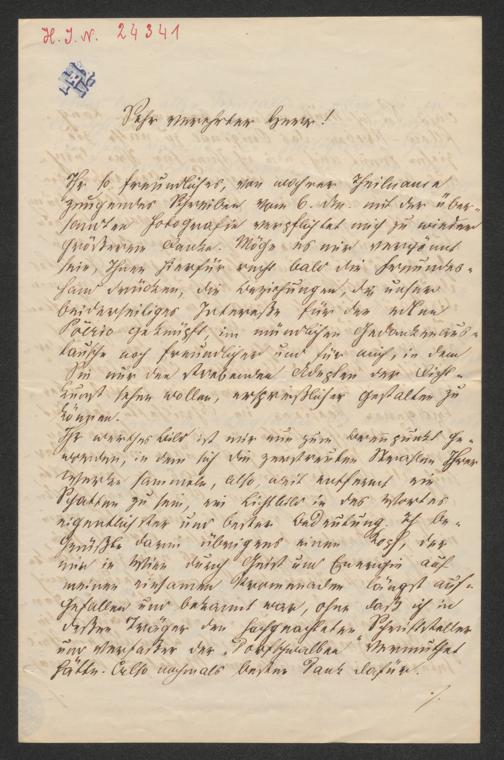 H. I. N. 24341
Sehr verehrter Herr!
Ihr so freundliches, von wahrer Theilname
zeugendes Schreiben vom 6. dM. mit der über-
sandten Fotografie verpflichtet mich zu wieder
größerem Danke. Möge es mir vergönnt
sein, Ihnen hierfür recht bald die Freundes-
hand drücken, die Beziehungen, die unser
beiderseitiges Interesse für die edle
Poësie geknüpft, im mündlichen Gedankenaus-
tausche noch freundlicher und für mich, in dem
Sie nur den strebenden Adepten der Dicht-
kunst sehen wollen, ersprießlicher gestalten zu
können.
Ihr werthes Bild ist mir nun zum Brennpunkt ge-
worden, in dem sich die zerstreuten Strahlen Ihrer
Werke sammeln, also weit entfernt ein
Schatten zu sein, ein Lichtbild in des Wortes
eigentlichster und bester Bedeutung. Ich be-
grüßte darin übrigens einen Kopf, der
mir in Wien durch Geist und Energie auf
meinen einsamen Promenaden längst auf-
gefallen und bekannt war, ohne daß ich in
dessen Träger den hochgeachteten Schriftsteller
und Verfasser der "Dorfschwalben" vermuthet
hätte. Also nochmals besten Dank dafür.
./.